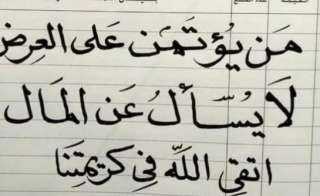 مَن يُؤتَمَن عَلى العِرضِ
لَا يُسَّألُ عَن المَال
اتقي اللَّه في كَريمتِنَا